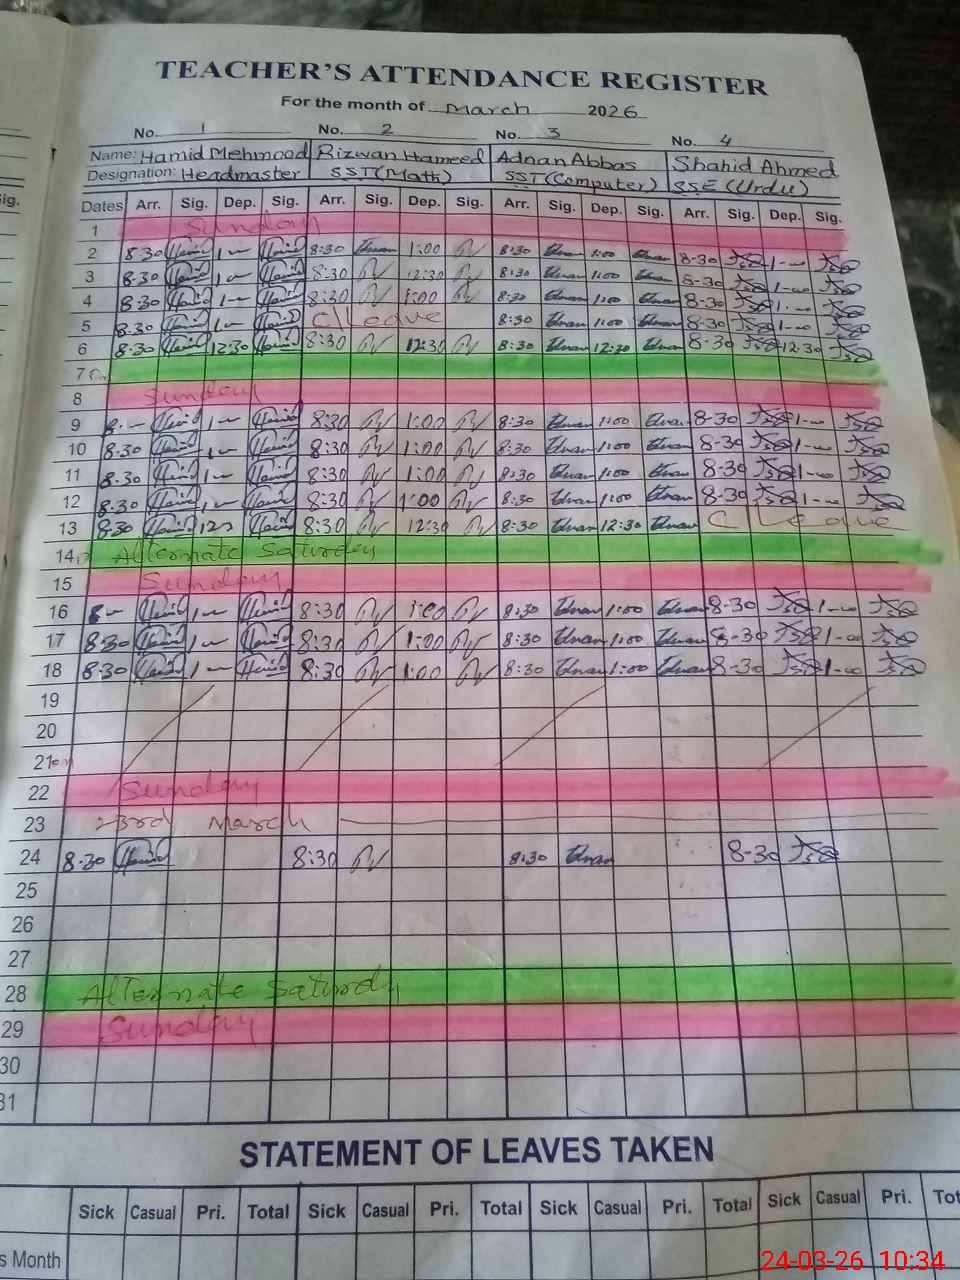 TEACHER'S ATTENDANCE REGISTER
For the month of March 2026
No. 1 No. 2 No. 3 No. 4
Name: Hamid Mehmood Rizwan Hameed Adnan Abbas Shahid Ahmed
Designation: Headmaster SST(Math) SST(Computer) SSE (Urdu)
Sig. Dates Arr. Sig. Dep. Sig. Arr. Sig. Dep. Sig. Arr. Sig. Dep. Sig. Arr. Sig. Dep. Sig.
1 Sunday
2 8:30 1 — 8:30 1:00 8:30 1:00 8-30 1-00
3 8.30 1 — 8:30 12:30 8:30 1:00 8-30 1-00
4 8.30 1 — 8:30 1:00 8:30 1:00 8-30 1-00
5 8.30 1 — C/Leave 8:30 1:00 8-30 1-00
6 8.30 12:30 8:30 12:30 8:30 12:30 8-30 12-30
7
8 Sunday
9 8. — 1 — 8:30 1:00 8:30 1:00 8-30 1-00
10 8.30 1 — 8:30 1:00 8:30 1:00 8-30 1-00
11 8.30 1 — 8:30 1:00 8:30 1:00 8-30 1-00
12 8.30 1 — 8:30 1:00 8:30 1:00 8-30 1-00
13 8:30 8:30 12:30 8:30 12:30 C/Leave
14 Alternate Saturday
15 Sunday
16 8 — 1 — 8:30 1:00 8:30 1:00 8-30 1-00
17 8:30 1 — 8:30 1:00 8:30 1:00 8-30 1-00
18 8:30 1 — 8:30 1:00 8:30 1:00 8-30 1-00
19
20
21
22 Sunday
23 23rd March
24 8.30 8:30 8:30 8-30
25
26
27
28 Alternate Saturdy
29 Sunday
30
31
STATEMENT OF LEAVES TAKEN
Sick Casual Pri. Total Sick Casual Pri. Total Sick Casual Pri. Total Sick Casual Pri.
s Month
24-03-26 10:34